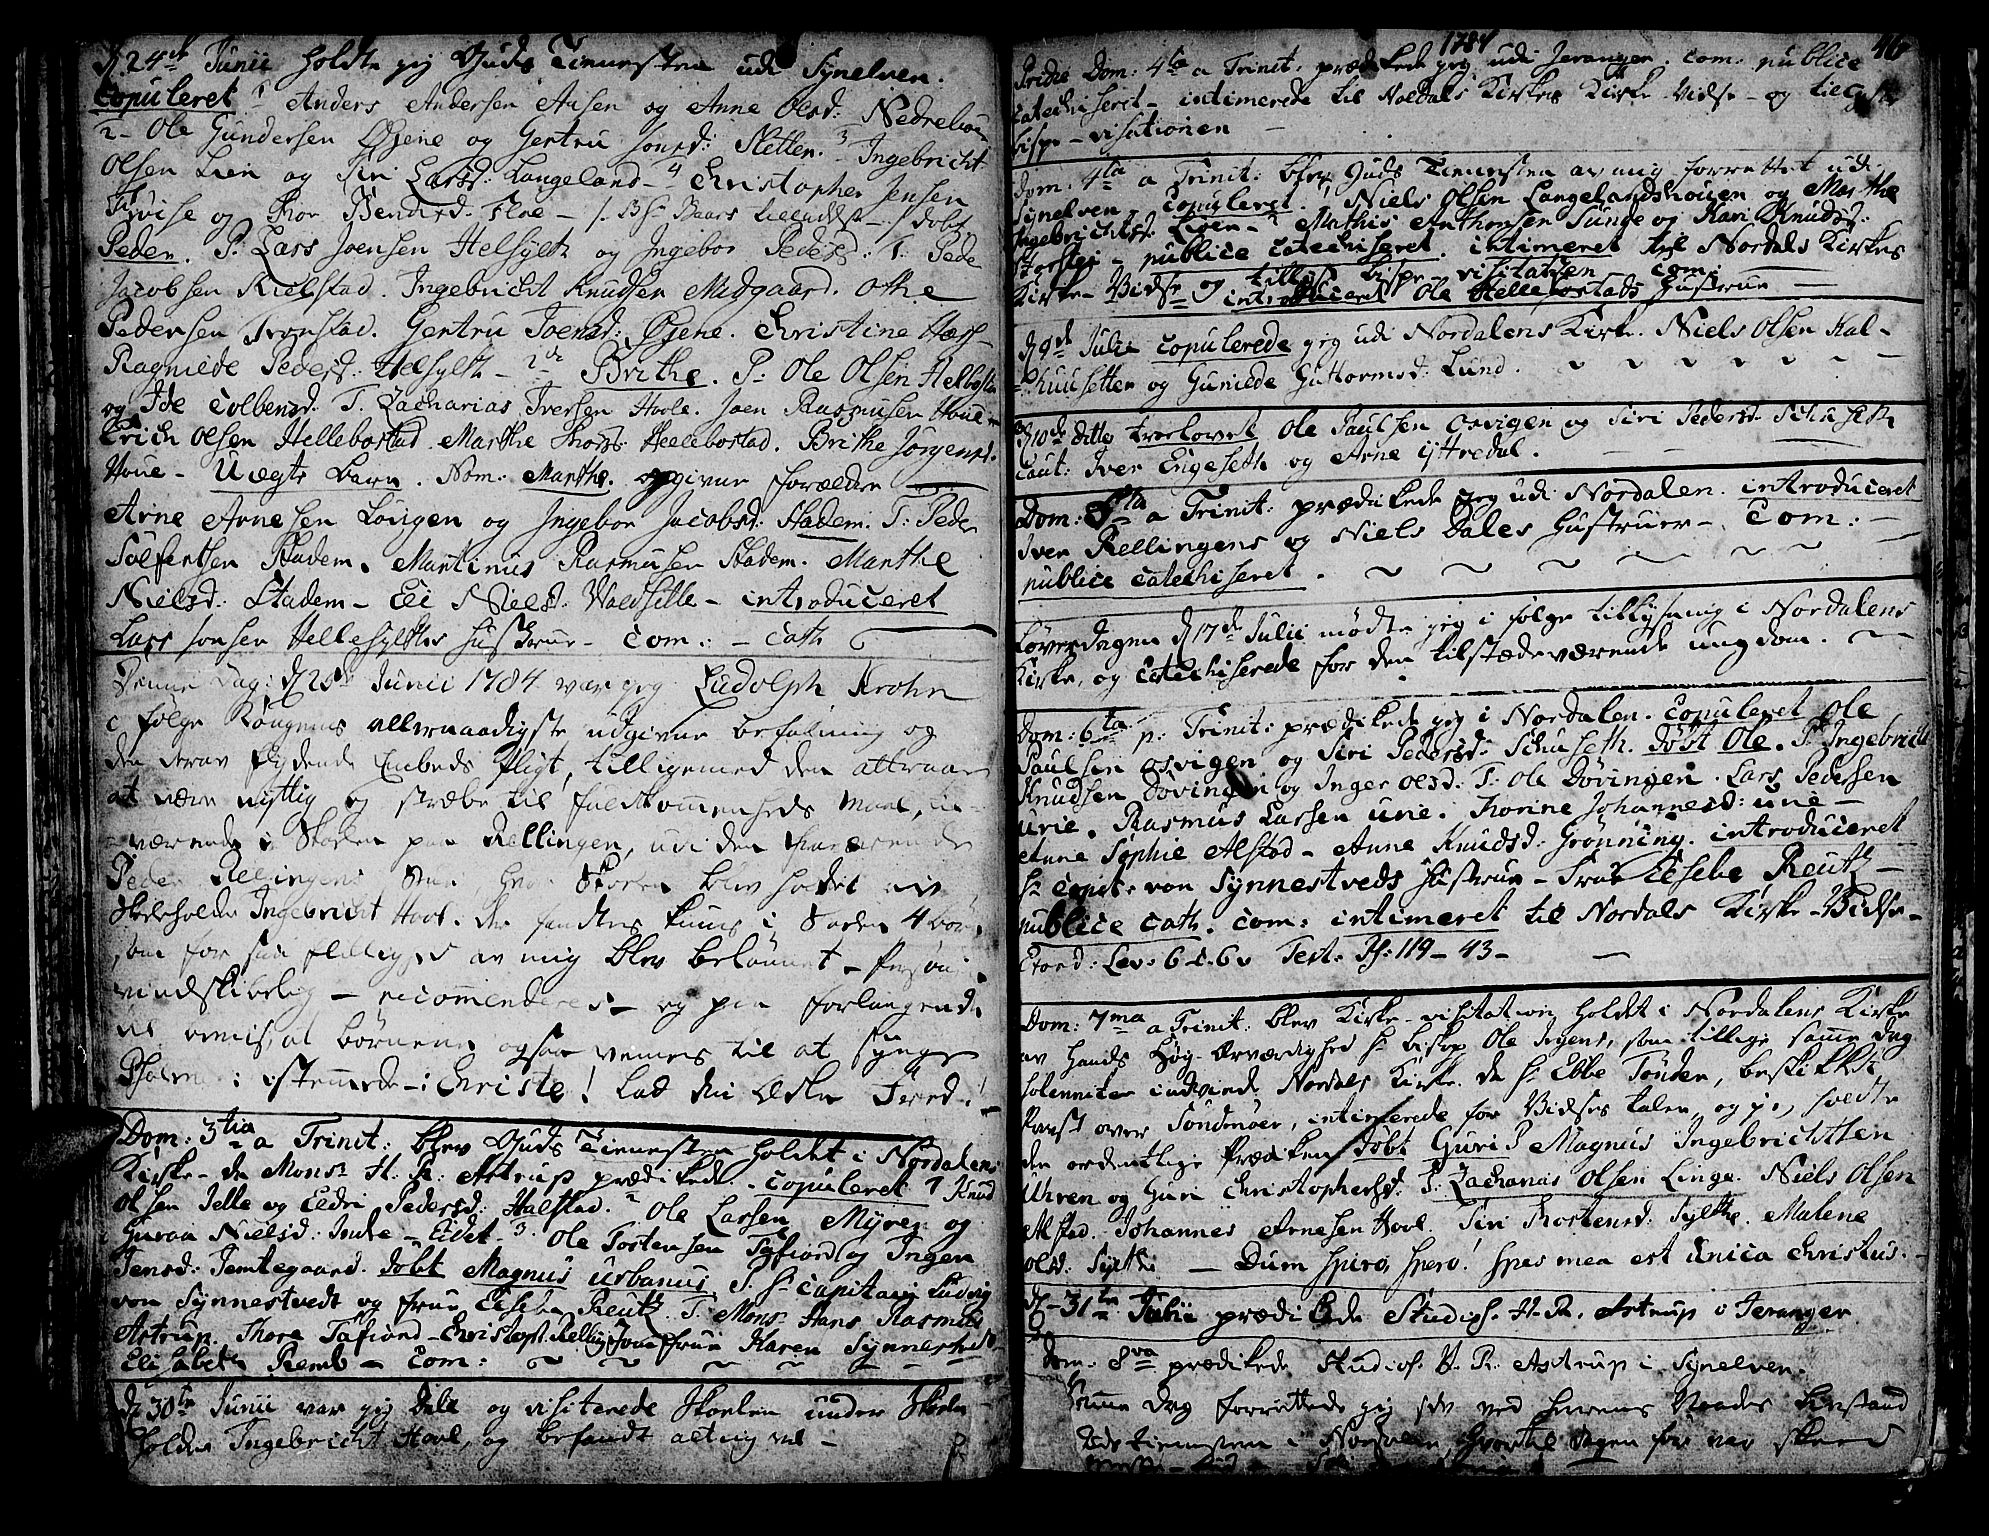 d. 24de Junii holdte jeg Guds Tienesten udi Synelven.
copuleret 1 Anders Andersen Aasen og Anne Olsd: Nedreboe
2- Ole Gundersen Øjene og Gertru Jonsd: Kletten. 3 Ingebricht
Olsen Lien og Siri Larsd: Langeland - 4 Christopher Jensen
og Bendixd. Floe - døbt
Peder. P. Lars Joensen Helsylth og Ingebor Pedersd: T. Peder
Jacobsen Kielstad. Ingebricht Knudsen Midgaard. Othe
Pedersen Tronstad. Gertru Joensd: Øjene. Christine
Ragnilde Pedersd: Helsylth - 2de Brithe. P. Ole Olsen Helbostad
og Ide Colbensd. T. Zacharias Iversen Hole. Joen Rasmusen Houe
Erich Olsen Hellebostad. Marthe Hellebostad. Brithe Jørgensd.
Houe - Uægte barn. Nom: Marthe. opgivne forældre
Arne Arnesen Longen og Ingebor Jacobsd: Stadem. T: Peder
Solfertsen Stadem. Martinus Rasmusen Stadem. Marthe
Nielsd: Stadem - Eli Nielsd: - introduceret
Lars Jonsen Hellesylthes Hustrue - Com: - Cath
Denne Dag: d. 25de Junii 1784 var jeg Ludolph Krohn
i følge Kongens allernaadigste udgivne befalning og
den derav flydende Embeds Pligt, tilligemed den attraae
at være nyttig og stræbe til fuldkommenheds maal,
værende i Skolen paa Rellingen, udi den
Peder Rellingens Stue, hvor Skolen blev holdet av
Skoleholder Ingebricht Hovl. der fandtes kuns i Skolen 4 børn
som for sin av mig blev belønnet -
vindskibelig - recommenderes - og paa forlangende
at børnene ogsaa vennes til at synge
Psalmer i Christe! Lad din Æskes Fred!
Dom: 3tia a Trinit: blev Guds Tienesten holdt i Nordalens
Kirke - da Monsr H. R. Astrup prædikede. - copuleret 1 Knud
Olsen Jelle og Eldri Pedersd: Halstad. 2 Ole Larsen Myren og
Guraa Nielsd: Indre - Eidet. 3. Ole Tostensen Tafiord og Inger
Jensd: Jemtegaard. døbt Magnus Urbanus. P. Hr Capitain Ludvig
von Synnestvedt og frue Eeseba Reutz. T. Monsr Hans Rasmus
Astrup. Thore Tafiord - Christoph. Relling Jomfrue Karen Synnestvedt
Elisabeth Remb - Com:
d. 30te Junii var jeg Dale og visiterede Skolen under Skole-
holder Ingebricht Hovl, og befandt alting vel -
1784
46
Pridie Dom: 4ta a Trinit: prædikede jeg udi Jeranger. Com: publice
catechiseret - intimerede til Noldals Kirkes Kirke Vidse - og tillyste
bispe - visitationen
Dom: 4ta a Trinit: blev Guds Tienesten av mig forrettet udi
Synelven. Copuleret. 1 Niels Olsen Langelandshouen og Marthe
Ingebrichtsd: Lien - 2 Mathis Anthonsen Sunde og Kari Knudsd:
Storslei - publice catechiseret. intimeret til Nordals Kirkes
Kirke - Vidse og tillyst bispe - visitatzen Com:
introduceret Ole Hellebostads Hustrue
d. 9de Julii copulerede jeg udi Nordalens Kirke. Niels Olsen Kal-
huusetter og Gunilde Guttormsd: Lund.
d. 10de ditto trolovet Ole Paulsen Osvigen og Siri Pedersd: Schuseth
caut: Iver Engeseth og Arne Yttredal.
Dom: 5ta a Trinit: prædikede jeg udi Nordalen. introduceret
Iver Rellingens og Niels Dales Hustruer - Com: -
publice catechiseret.
Løverdagen d. 17de Julii mødte jeg i følge tillysning i Nordalens
Kirke, og Catechiserede for den tilstædeværende ungdom.
Dom: 6ta p: Trinit: prædikede jeg i Nordalen. copuleret Ole
Paulsen Osvigen og Siri Pedersd: Schuseth. døbt Ole. P. Ingebricht
Knudsen Døvingen og Inger Olsd: T: Ole Døvingen. Lars Pedersen
Urie. Rasmus Larsen Urie. Thorine Johannesd: Urie -
Anne Sophie Alstad - Anne Knudsd: Grønning. introduceret
Hr Capit. von Synnestveds Hustrue - Frue Eeseba Reutz -
publice cath. Com: intimeret til Nordals Kirke - Vidse -
Exord: Lev: 6 c. 6 v Text. Ps: 119 - 43 -
Dom: 7ma a Trinit: blev Kirke - visitation holdet i Nordalens Kirke
av Hands Høy - Ærværdighed Hr bisp Ole Irgens, som tillige samme dag
solenniter indviede Nordals Kirke. da Hr Ebbe Tønder, beskikket
Provst over Søndmøer, intimerede for Vidses talen, og jeg holdte
den ordentlige Prædiken. døbt Guri P Magnus Ingebrichtsen
Uhren og Guri Christophersd: T: Zacharias Olsen Linge. Niels Olsen
Alstad. Johannes Arnesen Hovl. Siri Thorstensd: Sylthe. Malene
Olsd: Sylthe - Dum spiro, spero! spes mea est unica Christus.
d. 31te Julii prædikede Studios. H. R. Astrup i Jeranger
Dom: 8va prædikede Studios. H. R. Astrup i Synelven.
Samme Dag forrettede jeg ved Herrens Naades bistand
Guds tienesten i Nordalen,